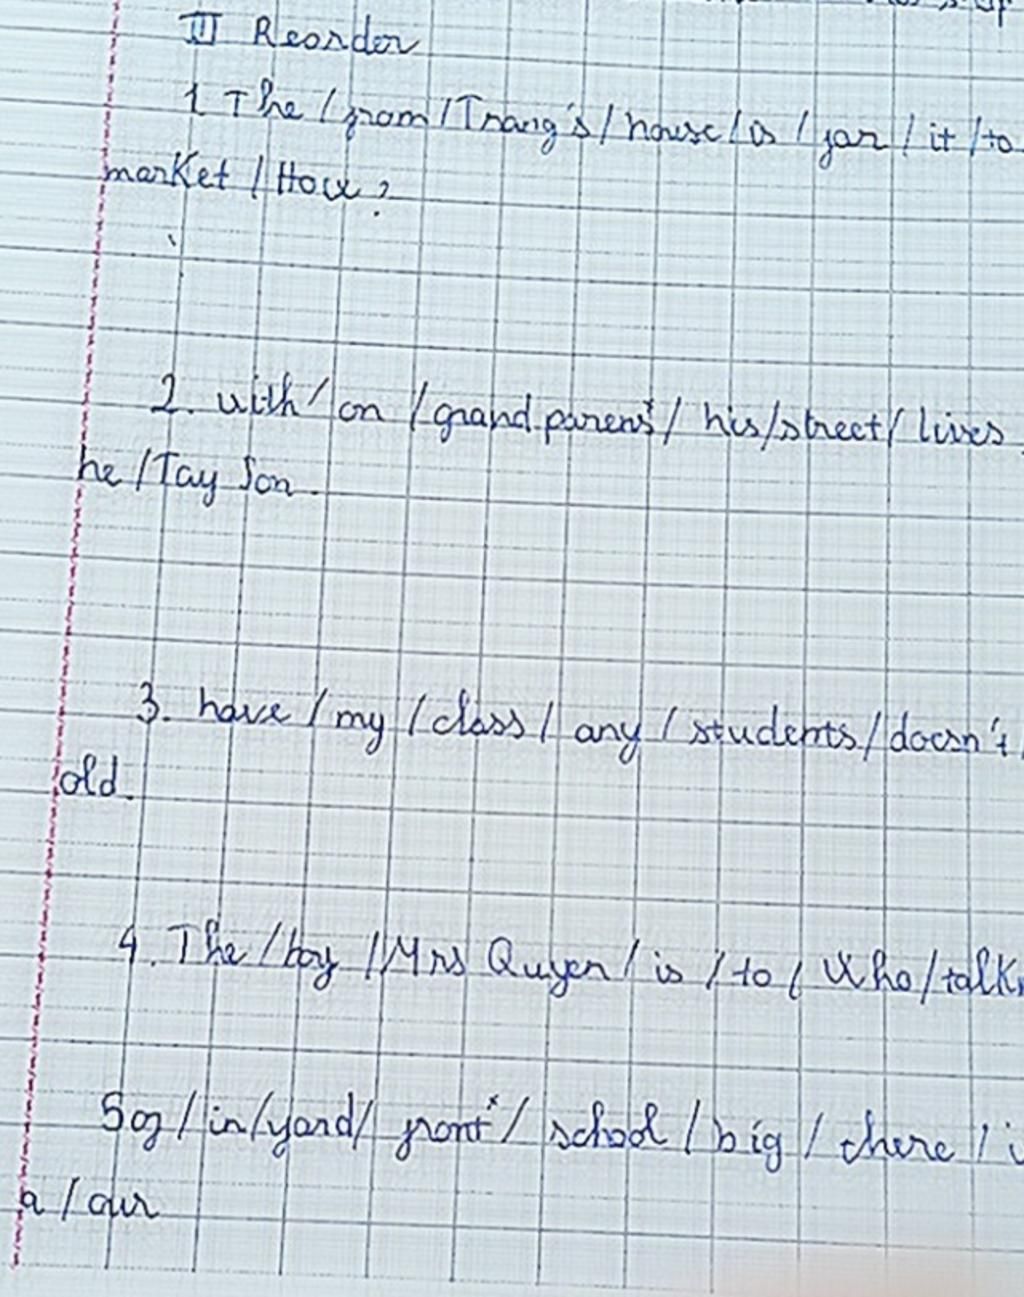 II Reorder
1. The / from / Trang's / house / is / far / it / to
market / How ?
2. with / on / grand parents / his / street / lives
he / Tay Son.
3. have / my / class / any / students / doesn't
old.
4. The / boy / Mrs Quyen / is / to / Who / talk
5 of / in / yard / front / school / big / there / i
a / our